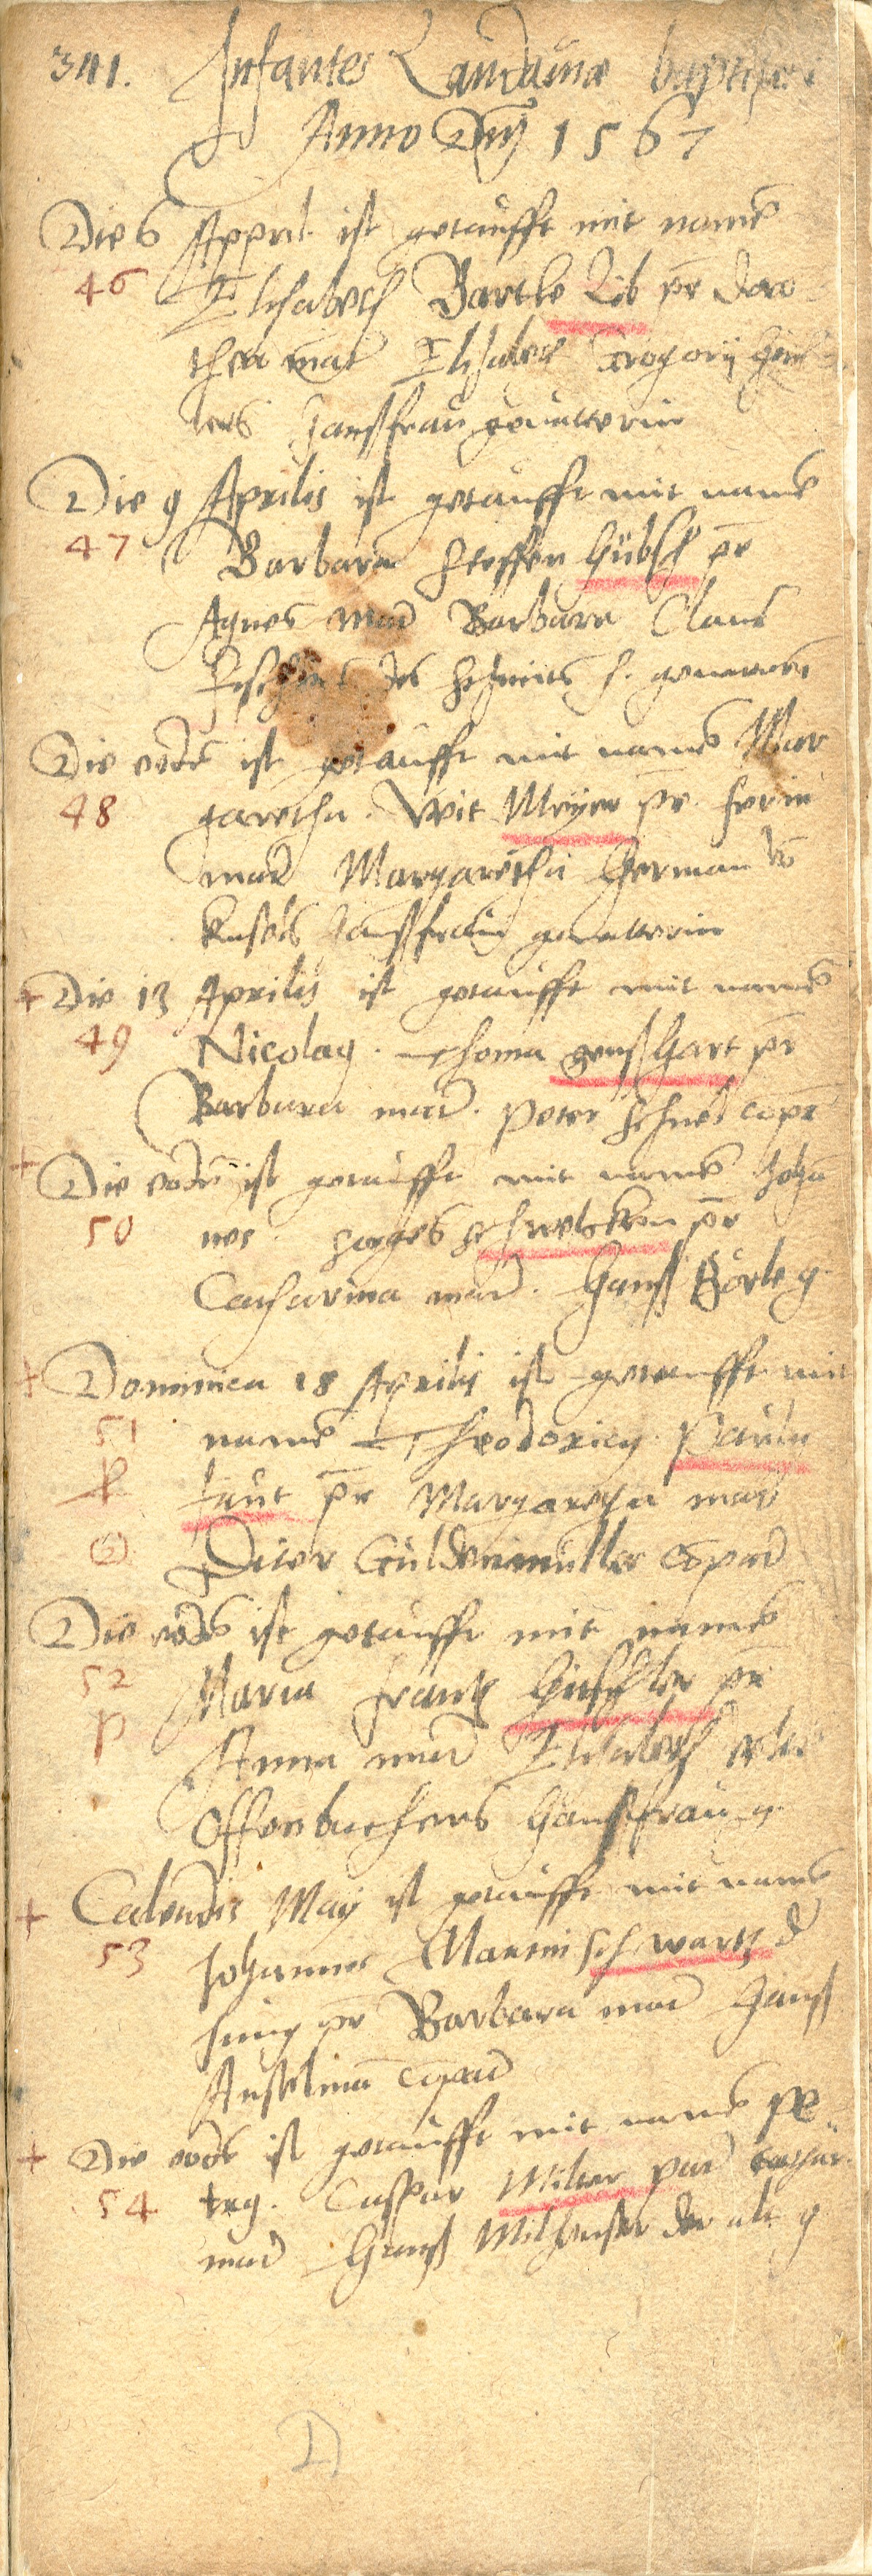 341. Infantes Landauiæ baptisati
Anno Dnj 1567
Die 6 Appril ist getaufft mit name
46 Elisabeth Bartle Lib pr doro
thea mar Elisabet Gregorij
lers haussfrau geuatterin
Die 9 Aprilis ist getaufft mit name
47 Barbara Steffen Hübsch pr
Agnes mad Barbara Claus
des
Die eode ist getaufft mit name Mar
48 garetha. Veit Meyer pr.
mad Margaretha German
haussfrau geuatterin
+ Die 13 Aprilis ist getaufft mit name
49 Nicolaq. Thoma genssHart pr
Barbara mad. Peter Schned copr
+ Die eode ist getaufft mit name Joha
50 nes. Jorges schwebken pr
Catharina mad. Hanss Börle g.
+ Dominica 18 Aprilis ist getaufft mit
51 name Theodoricq. Paulu
P Laut pr Margaretha mad
Diter Güldenmuller copad
Die eode ist getaufft mit name
52 Maria Frantz pr
P Anna mad Elisabeth
Offenbachers Haussfrau g.
+ Calendis Maij ist getaufft mit name
53 Johannes Martin schwartz d
Jung pr Barbara mad Hanss
Anshelmu copad
+ Die eode ist getaufft mit name Pe
54 trq. Caspar Milter pad Cathar.
mad Hanss Milhenser der alt g
D